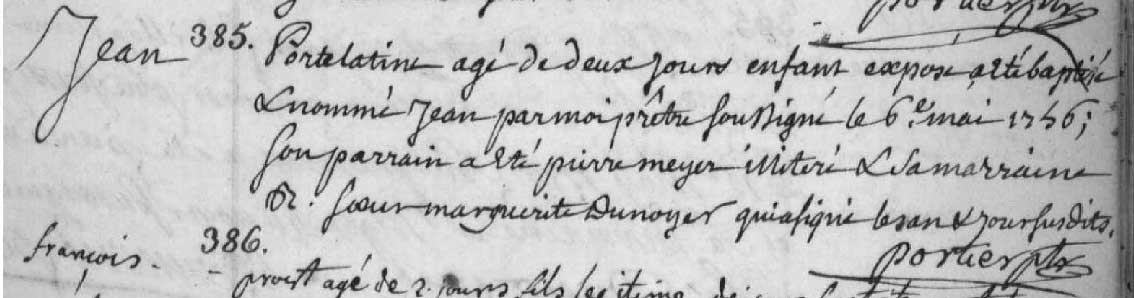 Jean 385. Portelatine agé de deux jours enfant exposé a eté baptisé
& nommé Jean par moi prêtre soussigné le 6.e mai 1756;
son parrain a eté pierre meyer illiteré & sa marraine
sœur marguerite Dunoyer qui a signé les an & jour susdits.
portier ptr
françois. 386.
agé de 2. jours fils legitime